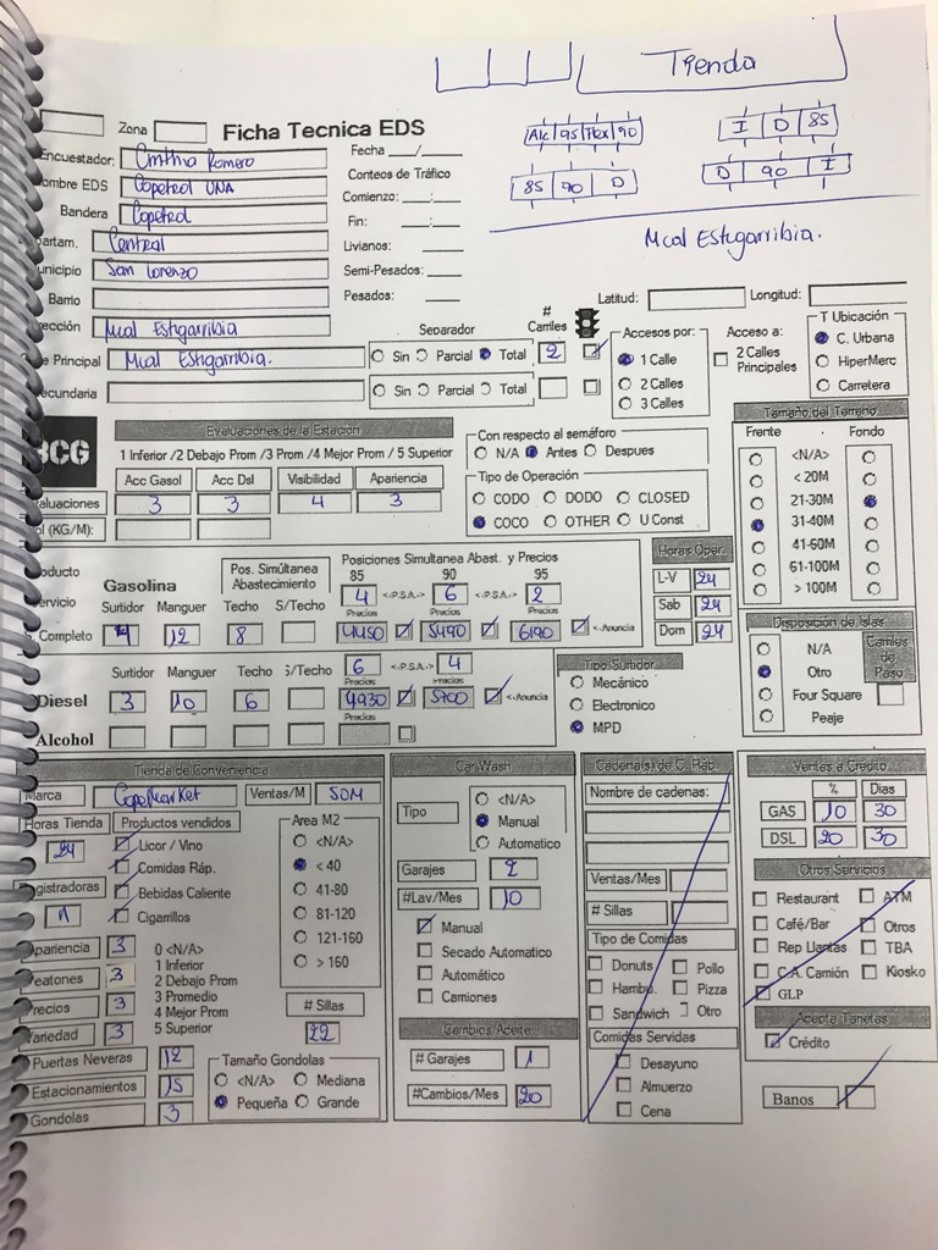 Tienda
Alc 95 Flex 90
I D 85
85 90 D
D 90 I
Mcal Estigarribia.
Zona
Ficha Tecnica EDS
Encuestador: Cinthia Romero
Fecha ___/___
ombre EDS Copetrol UNA
Conteos de Tráfico
Bandera Copetrol
Comienzo: ___:___
artam. Central
Fin: ___:___
unicipio San Lorenzo
Livianos:
Semi-Pesados:
Barrio
Pesados:
Latitud: Longitud:
ección Mcal Estigarribia
e Principal Mcal Estigarribia.
Separador # Carriles
Sin Parcial Total 2
ecundaria
Sin Parcial Total
Accesos por:
1 Calle
2 Calles
3 Calles
Acceso a:
2 Calles Principales
T Ubicación
C. Urbana
HiperMerc
Carretera
BCG
Evaluaciones de la Estación
1 Inferior /2 Debajo Prom /3 Prom /4 Mejor Prom / 5 Superior
Acc Gasol Acc Dsl Visibilidad Apariencia
aluaciones 3 3 4 3
l (KG/M):
Con respecto al semáforo
N/A Antes Despues
Tipo de Operación
CODO DODO CLOSED
COCO OTHER U Const
Tamaño del Terreno
Frente Fondo
<N/A>
< 20M
21-30M
31-40M
41-60M
61-100M
> 100M
oducto
Gasolina
Pos. Simúltanea Abastecimiento
Posiciones Simultanea Abast. y Precios
85 90 95
ervicio Surtidor Manguer Techo S/Techo
4 <-P.S.A.-> 6 <-P.S.A.-> 2
Precios Precios Precios
Completo 4 12 8 4450 5490 6190 <-Anuncia
Horas Oper.
L-V 24
Sab 24
Dom 24
Surtidor Manguer Techo S/Techo
6 <-P.S.A.-> 4
Precios Precios
Diesel 3 10 6 4930 5700 <-Anuncia
Precios
Alcohol
Tipo Surtidor
Mecánico
Electronico
MPD
Disposición de Islas
N/A
Otro
Four Square
Peaje
Carriles de Paso
Tienda de Conveniencia
Marca CopeMarket Ventas/M 50M
Horas Tienda Productos vendidos
24
Licor / Vino
Comidas Ráp.
Bebidas Caliente
Cigarrillos
egistradoras
1
Area M2
<N/A>
< 40
41-80
81-120
121-160
> 160
pariencia 3
eatones 3
recios 3
ariedad 3
0 <N/A>
1 Inferior
2 Debajo Prom
3 Promedio
4 Mejor Prom
5 Superior
# Sillas
22
Puertas Neveras 12
Estacionamientos 15
Gondolas 3
Tamaño Gondolas
<N/A> Mediana
Pequeña Grande
Car Wash
Tipo
<N/A>
Manual
Automatico
Garajes 2
#Lav/Mes 10
Manual
Secado Automatico
Automático
Camiones
Cambios Aceite
# Garajes 1
#Cambios/Mes 20
Cadena(s) de C. Ráp.
Nombre de cadenas:
Ventas/Mes
# Sillas
Tipo de Comidas
Donuts Pollo
Hambu. Pizza
Sandwich Otro
Comidas Servidas
Desayuno
Almuerzo
Cena
Ventas a Crédito
% Dias
GAS 10 30
DSL 20 30
Otros Servicios
Restaurant ATM
Café/Bar Otros
Rep Llantas TBA
C.A. Camión Kiosko
GLP
Acepta Tarjetas
Crédito
Banos